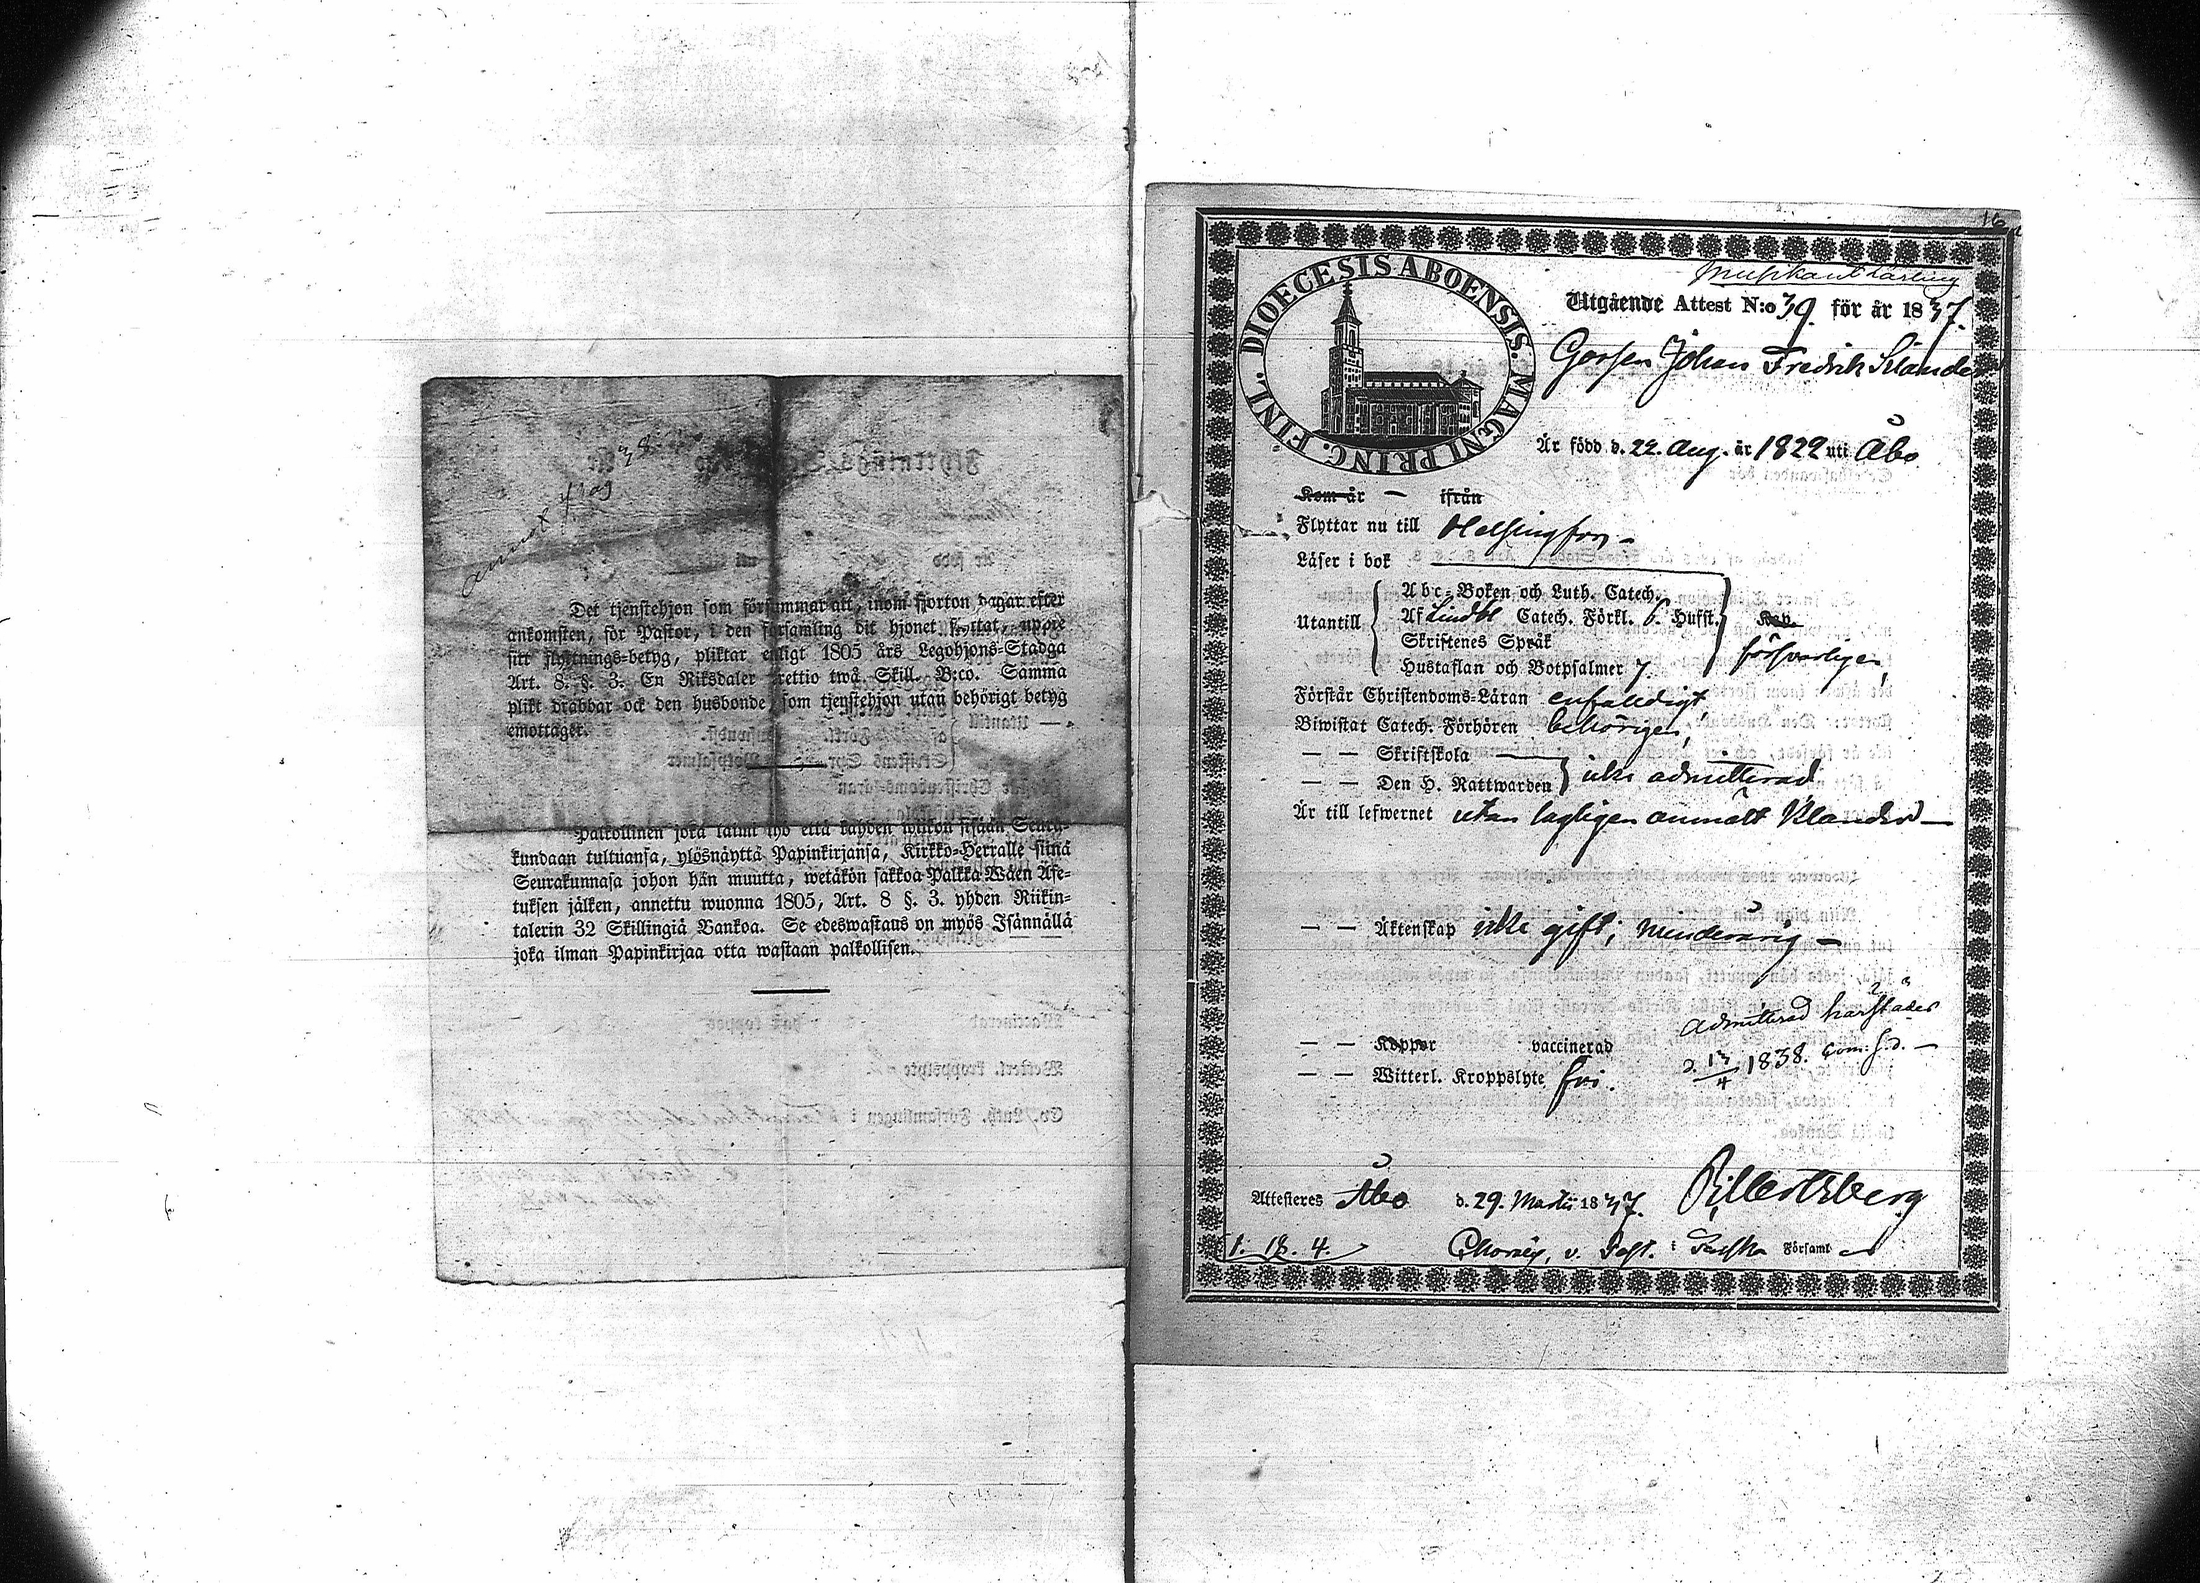 38.
anmält 4/109
Det tjenstehjon som försummar att, inom fjorton dagar efter
ankomsten, för Pastor, i den församling dit hjonet flyttat, uppte
sitt flyttnings-betyg, pliktar enligt 1805 års Legohjons-Stadga
Art. 8. §. 3. En Riksdaler trettio twå Skill. B:co. Samma
plikt drabbar ock den husbonde som tjenstehjon utan behörigt betyg
emottager.
Palkollinen joka laimi lyö että kahden wiikon sisään Seura-
kundaan tultuansa, ylösnäyttä Papinkirjansa, Kirkko-Herralle siinä
Seurakunnasa johon hän muutta, wetäkön sakkoa Palkka-Wäen Ase-
tuksen jälken, annettu wuonna 1805, Art. 8 §. 3. yhden Riikin-
talerin 32 Skillingiä Bankoa. Se edeswastaus on myös Isännällä
joka ilman Papinkirjaa otta wastaan palkollisen.
16
Musikant lärling
DIOECESIS ABOENSIS. MAGNI PRINC. FINL.
Utgående Attest N:o 39. för år 1837.
Gossen Johan Fredrik Silander
Är född d. 22. Aug. år 1822 uti Åbo
Kom år — ifrån
Flyttar nu till Helsingfors —
Läser i bok
Abc-Boken och Luth. Catech.
Utantill Af Lindbl Catech. Förkl. 6. Hufst. Nöj.
Skriftenes Språk försvarligen,
Hustaflan och Botpsalmer 7
Förstår Christendoms-Läran enfaldigt
Biwistat Catech. Förhören behörigen,
— — Skriftskola —
— — Den H. Nattwarden icke admitterad
Är till lefwernet utan lagligen anmält klander —
— — Äktenskap icke gift; minderårig —
admitterad härstädes
— — Koppor vaccinerad d. 13/4 1838.
— — Witterl. Kroppslyte fri.
Attesteres Åbo d. 29. Martii 1837.
1. 18. 4. v. Past. i Församl